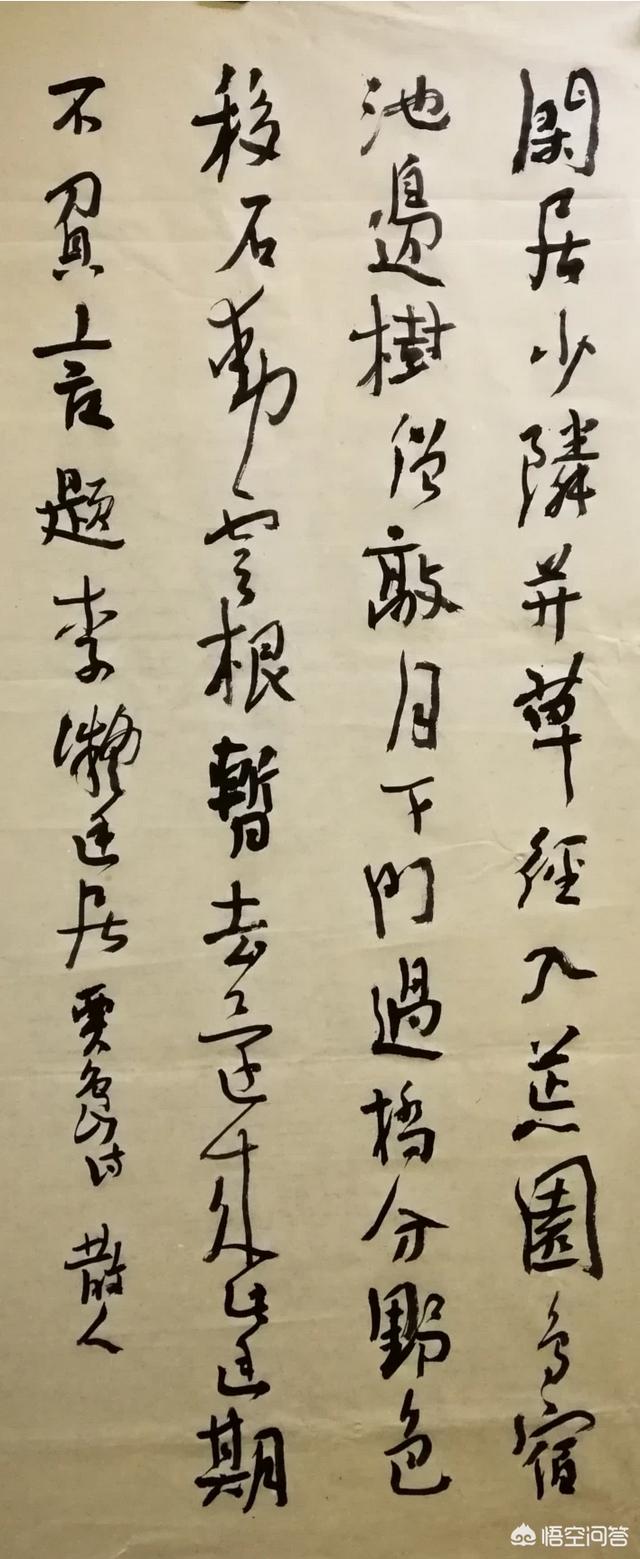 閑居少隣并草徑入荒園鳥宿
池邊樹僧敲月下門過橋分野色
移石動雲根暫去還來此幽期
不負言題李凝幽居賈島詩 散人
悟空问答